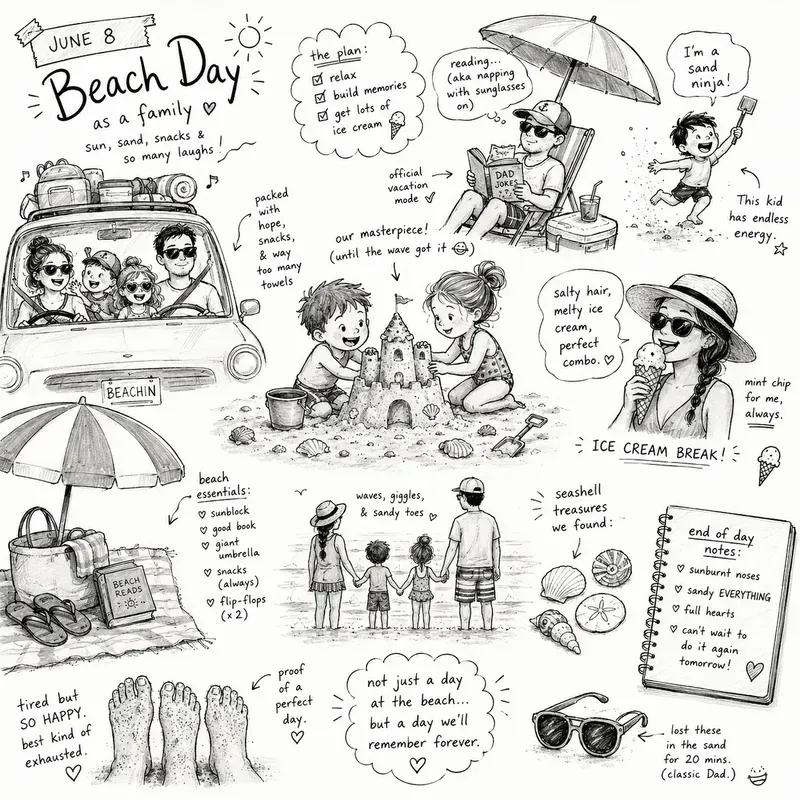 JUNE 8
Beach Day
as a family ♡
sun, sand, snacks &
so many laughs!
the plan:
☑ relax
☑ build memories
☑ get lots of
ice cream
reading...
(aka napping
with sunglasses
on)
DAD
JOKES
official
vacation
mode
I'm a
sand
ninja!
This kid
has endless
energy.
packed
with
hope,
snacks,
& way
too many
towels
BEACHIN
our masterpiece!
(until the wave got it)
salty hair,
melty ice
cream,
perfect
combo. ♡
mint chip
for me,
always.
ICE CREAM BREAK!
beach
essentials:
♡ sunblock
♡ good book
♡ giant
umbrella
♡ snacks
(always)
♡ flip-flops
(x 2)
BEACH
READS
waves, giggles,
& sandy toes ♡
seashell
treasures
we found:
end of day
notes:
♡ sunburnt noses
♡ sandy EVERYTHING
♡ full hearts
♡ can't wait to
do it again
tomorrow!
tired but
SO HAPPY.
best kind of
exhausted.
♡
proof
of a
perfect
day.
♡
not just a day
at the beach...
but a day we'll
remember forever.
♡
lost these
in the sand
for 20 mins.
(classic Dad.)